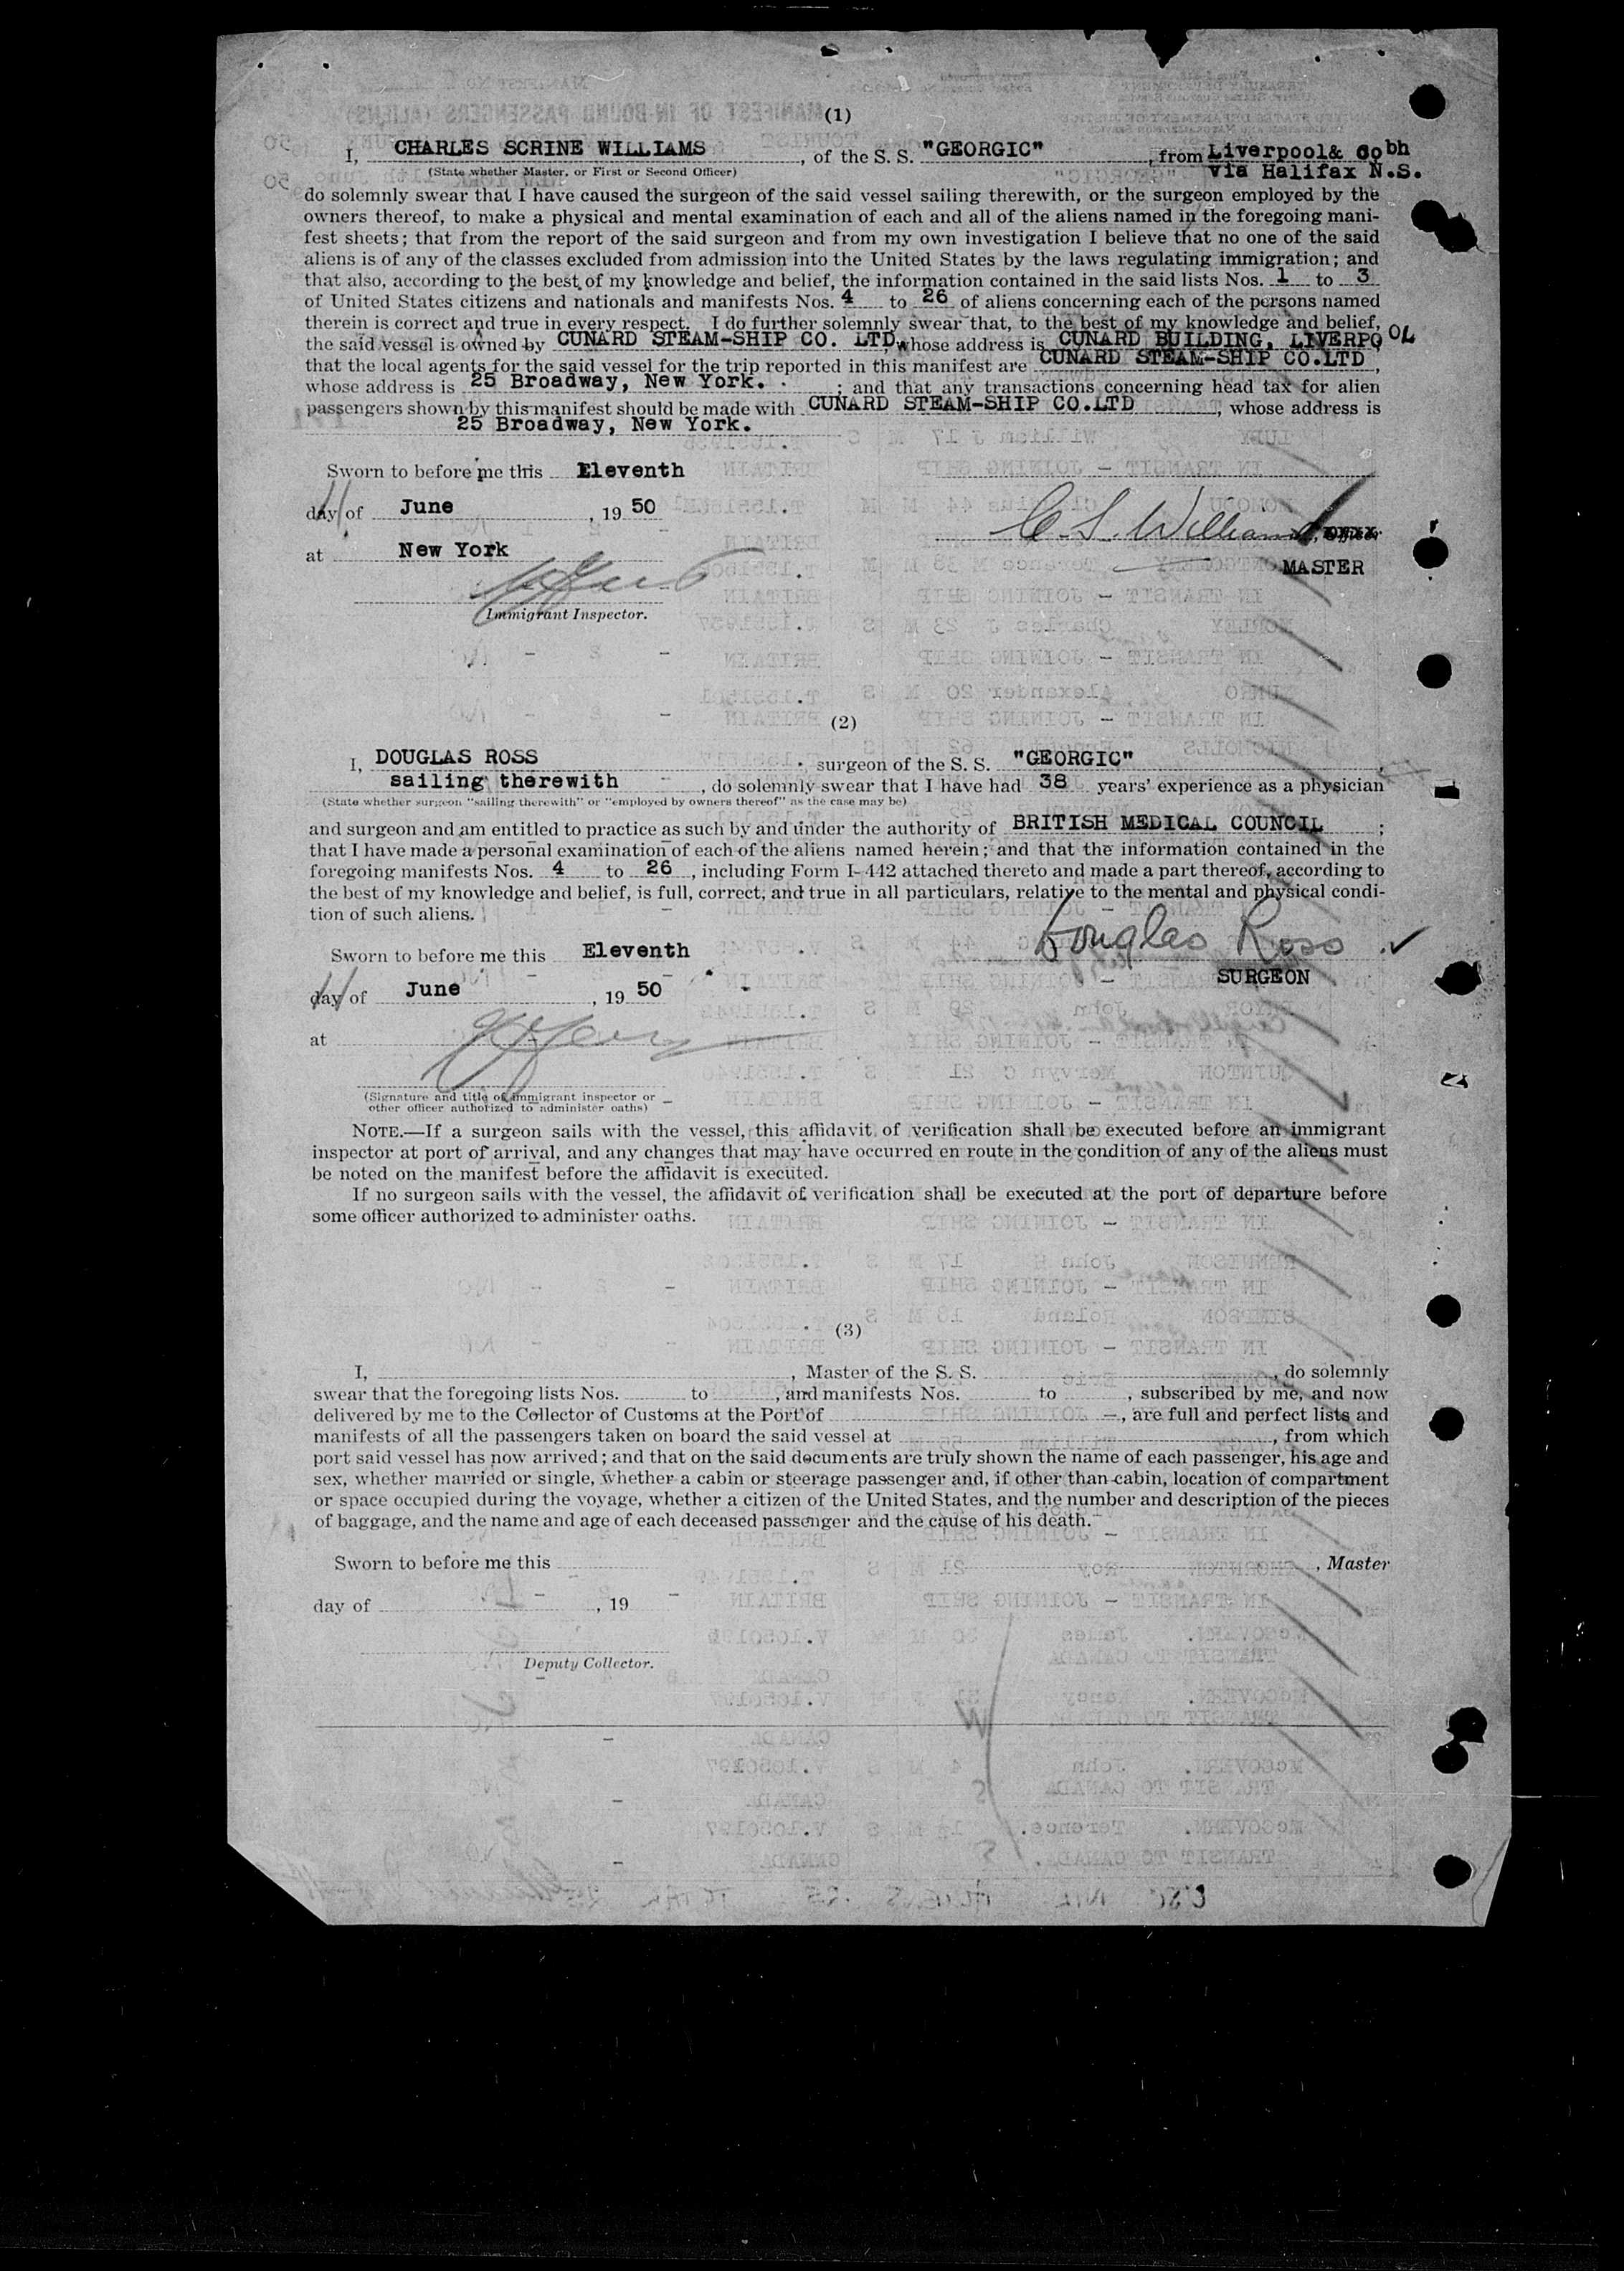 (1)
I, CHARLES SCRINE WILLIAMS, of the S. S. "GEORGIC", from Liverpool& Cobh
(State whether Master, or First or Second Officer) via Halifax N.S.
do solemnly swear that I have caused the surgeon of the said vessel sailing therewith, or the surgeon employed by the
owners thereof, to make a physical and mental examination of each and all of the aliens named in the foregoing mani-
fest sheets; that from the report of the said surgeon and from my own investigation I believe that no one of the said
aliens is of any of the classes excluded from admission into the United States by the laws regulating immigration; and
that also, according to the best of my knowledge and belief, the information contained in the said lists Nos. 1 to 3
of United States citizens and nationals and manifests Nos. 4 to 26 of aliens concerning each of the persons named
therein is correct and true in every respect. I do further solemnly swear that, to the best of my knowledge and belief,
the said vessel is owned by CUNARD STEAM-SHIP CO. LTD, whose address is CUNARD BUILDING, LIVERPOOL
that the local agents for the said vessel for the trip reported in this manifest are CUNARD STEAM-SHIP CO.LTD,
whose address is 25 Broadway, New York. ; and that any transactions concerning head tax for alien
passengers shown by this manifest should be made with CUNARD STEAM-SHIP CO.LTD, whose address is
25 Broadway, New York.
Sworn to before me this Eleventh
day of June, 19 50
C. S. Williams, Officer
at New York
MASTER
Immigrant Inspector.
(2)
I, DOUGLAS ROSS surgeon of the S. S. "GEORGIC",
sailing therewith, do solemnly swear that I have had 38 years' experience as a physician
(State whether surgeon "sailing therewith" or "employed by owners thereof" as the case may be)
and surgeon and am entitled to practice as such by and under the authority of BRITISH MEDICAL COUNCIL;
that I have made a personal examination of each of the aliens named herein; and that the information contained in the
foregoing manifests Nos. 4 to 26, including Form I-442 attached thereto and made a part thereof, according to
the best of my knowledge and belief, is full, correct, and true in all particulars, relative to the mental and physical condi-
tion of such aliens.
Douglas Ross
Sworn to before me this Eleventh
SURGEON
day of June, 19 50
at
(Signature and title of immigrant inspector or
other officer authorized to administer oaths)
NOTE.—If a surgeon sails with the vessel, this affidavit of verification shall be executed before an immigrant
inspector at port of arrival, and any changes that may have occurred en route in the condition of any of the aliens must
be noted on the manifest before the affidavit is executed.
If no surgeon sails with the vessel, the affidavit of verification shall be executed at the port of departure before
some officer authorized to administer oaths.
(3)
I, , Master of the S. S. , do solemnly
swear that the foregoing lists Nos. to , and manifests Nos. to , subscribed by me, and now
delivered by me to the Collector of Customs at the Port of , are full and perfect lists and
manifests of all the passengers taken on board the said vessel at , from which
port said vessel has now arrived; and that on the said documents are truly shown the name of each passenger, his age and
sex, whether married or single, whether a cabin or steerage passenger and, if other than cabin, location of compartment
or space occupied during the voyage, whether a citizen of the United States, and the number and description of the pieces
of baggage, and the name and age of each deceased passenger and the cause of his death.
Sworn to before me this , Master
day of , 19
Deputy Collector.